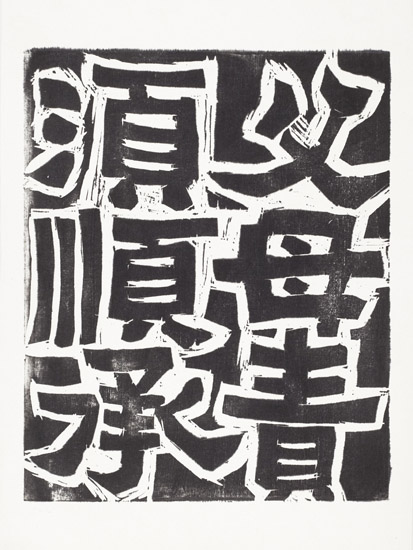 父母責
須順承